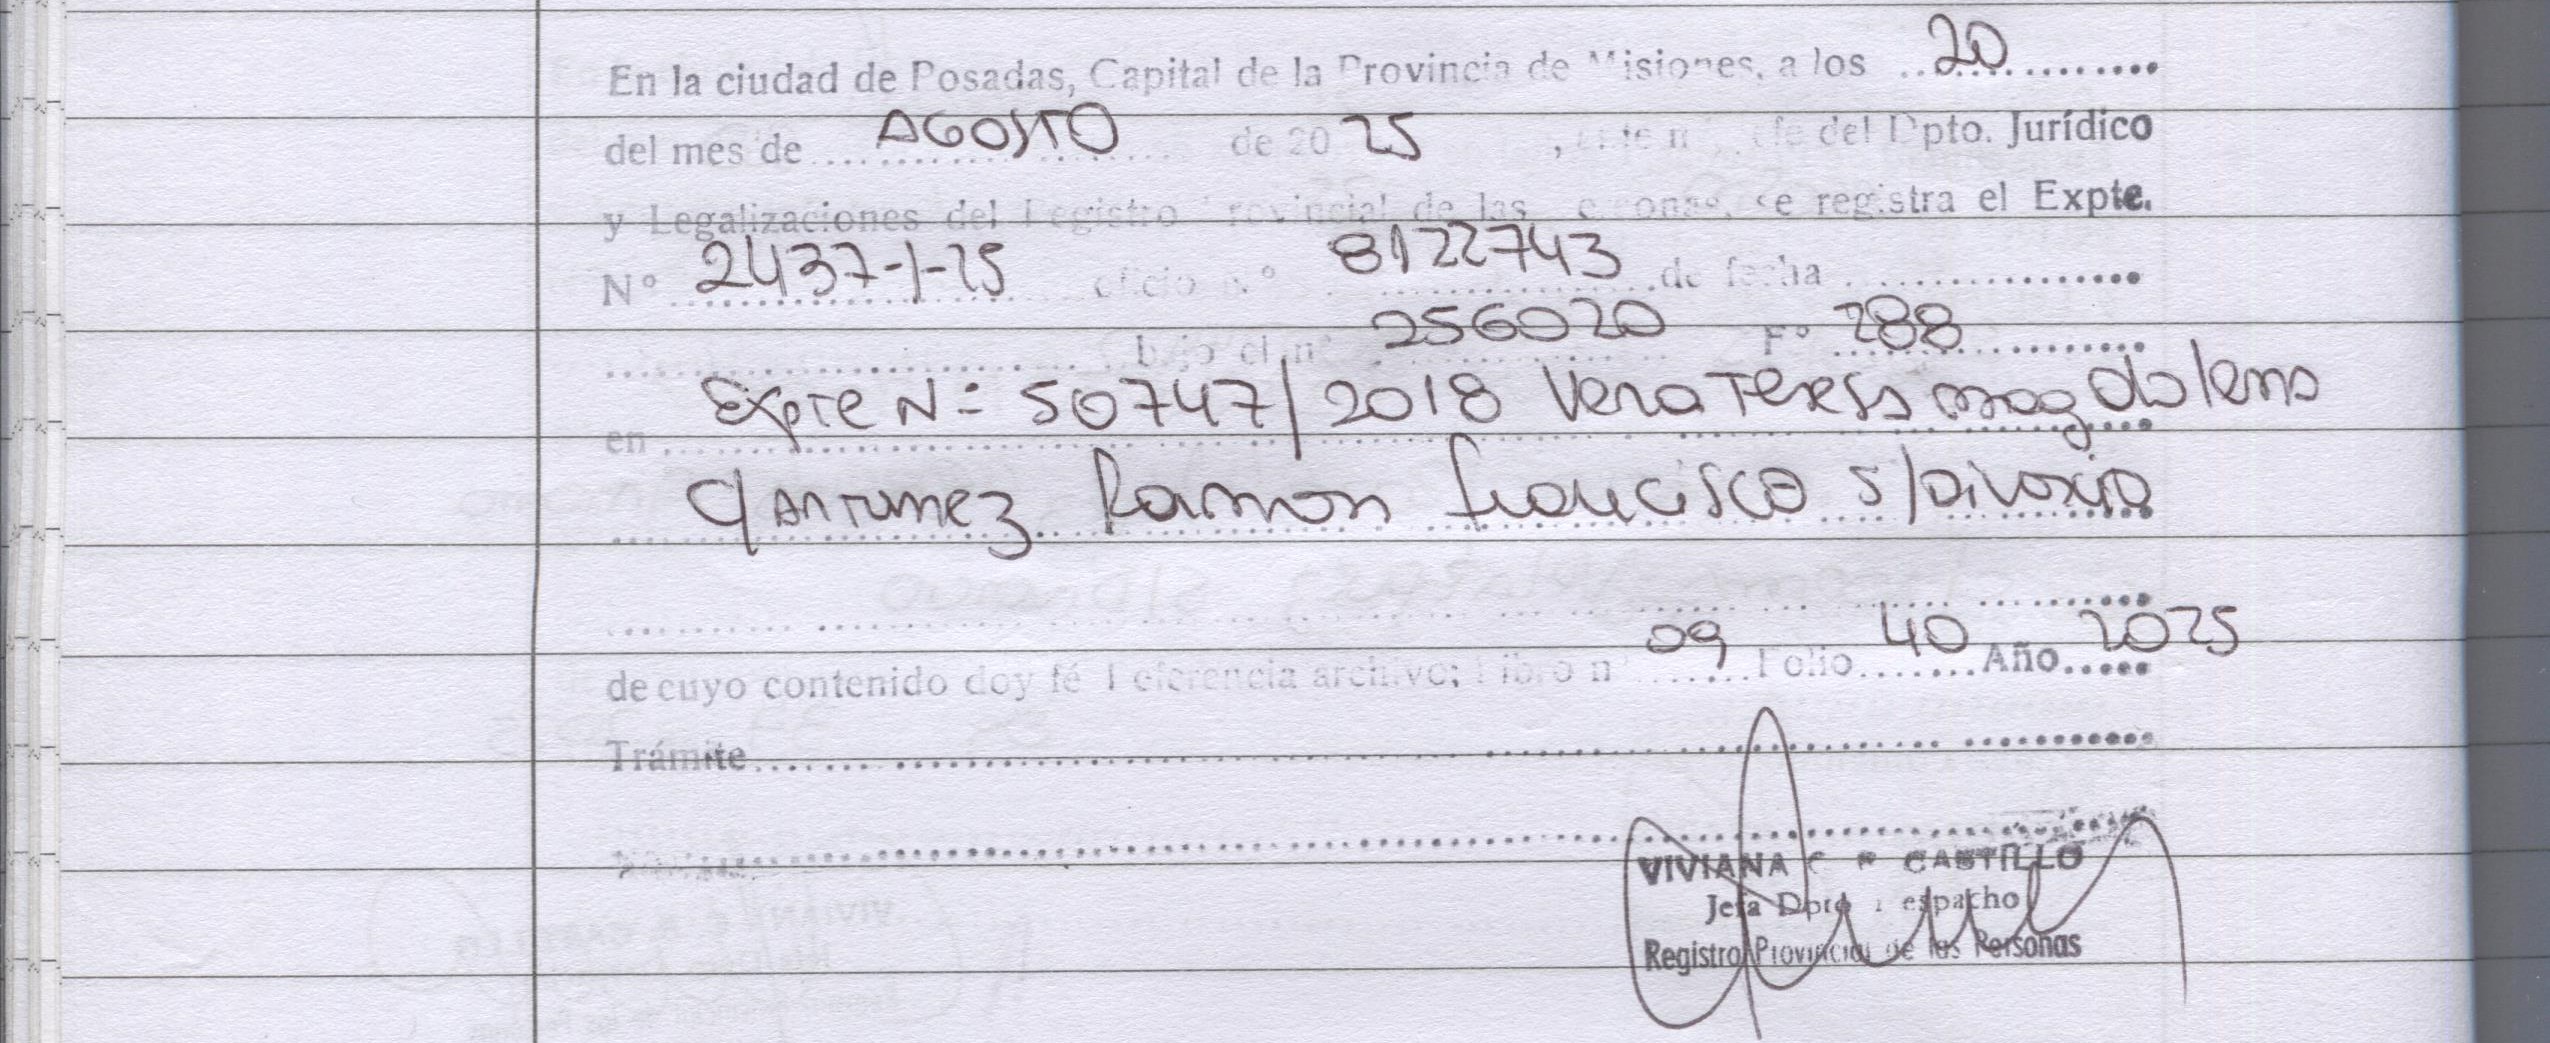 En la ciudad de Posadas, Capital de la Provincia de Misiones, a los 20
del mes de AGOSTO de 2025, ante mi Jefe del Dpto. Jurídico
y Legalizaciones del Registro Provincial de las Personas, se registra el Expte.
Nº 2437-1-25 oficio n.º 8122743 de fecha
bajo el nº 256020 Fº 288
en Expte N= 50747/2018 Vera Teresa magdalena
c/ Antunez Ramon francisco s/Divorcio
de cuyo contenido doy fé Referencia archivo; Libro nº 09 Folio 40 Año 2025
Trámite
VIVIANA C R CASTILLO
Jefa Dpto Despacho
Registro Provincial de las Personas